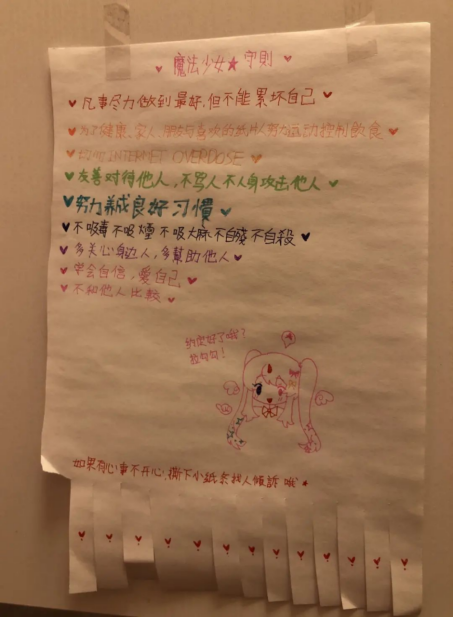 ♥ 魔法少女★守則 ♥
♥ 凡事尽力做到最好,但不能累坏自己 ♥
♥ 为了健康、家人、朋友与喜欢的紙片人努力运动控制飲食 ♥
♥ INTERNET OVERDOSE ♥
♥ 友善对待他人,不骂人不人身攻击他人 ♥
♥ 努力养成良好习慣 ♥
♥ 不吸毒不吸煙 不吸大麻不自殘不自殺 ♥
♥ 多关心身边人,多幫助他人 ♥
♥ 学会自信,愛自己 ♥
♥ 不和他人比較 ♥
約定好了哦?
拉勾勾!
如果有心事不开心,撕下小紙条找人傾訴哦 ♥